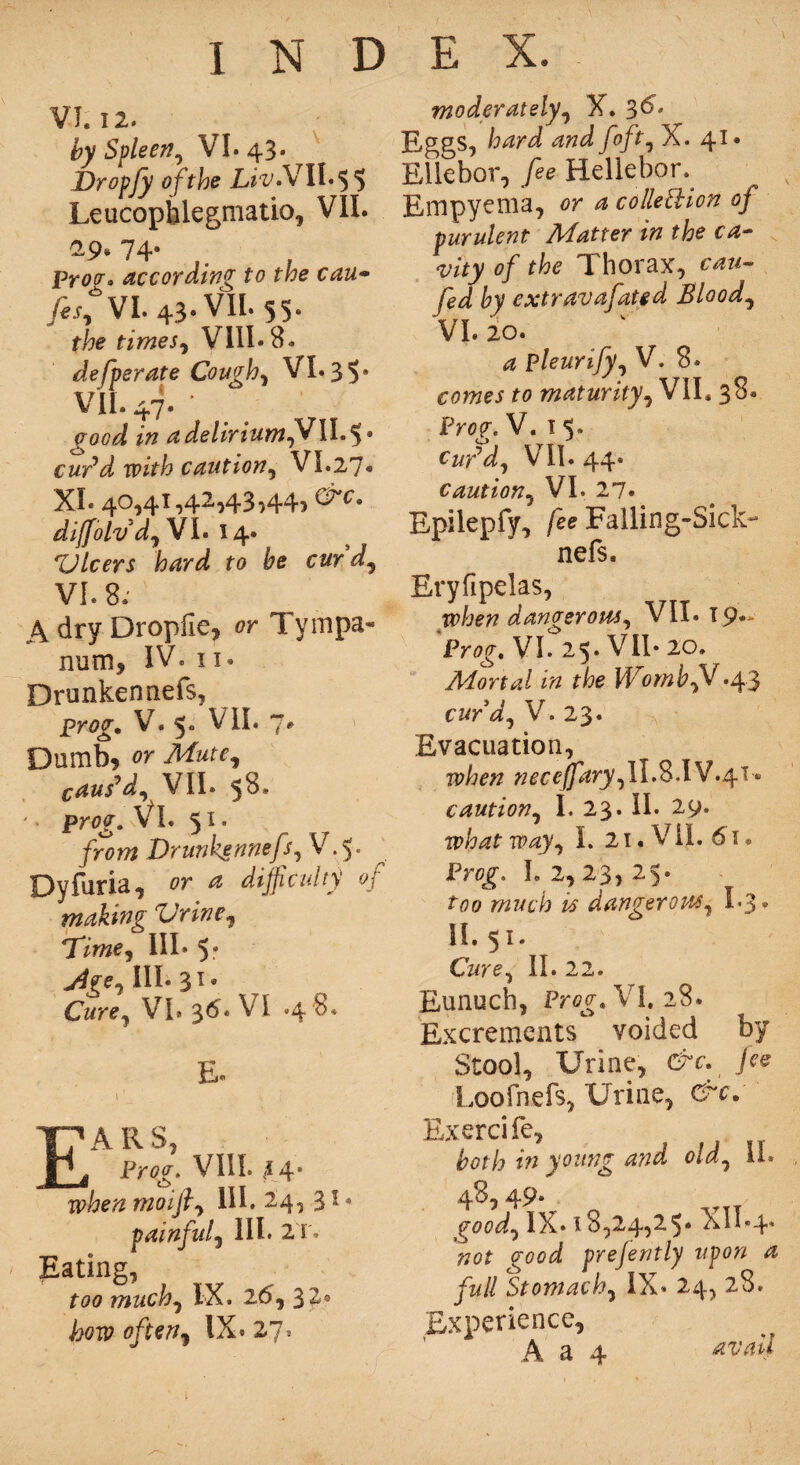 INDEX.
VI. 12.
by Spleen, VI. 43.
Dropſy of the Liv. VII. 55
Leucophlegmatio, VII.
29. 74.
Prog. according to the cau-
ſes, VI. 43. VII. 55.
the times, VIII. 8.
deſperate Cough, VI. 35.
VII. 47.
good in a delirium, VII. 5.
cur'd with caution, VI. 27.
XI. 40,41,42,43,44, &c.
diſſolv'd, VI. 14.
Ulcers hard to be cur'd,
VI. 8.
A dry Dropſie, or Tympa-
num, IV. 11.
Drunkenneſs,
prog. V. 5. VII. 7.
Dumb, or Mute,
cauſ'd, VII. 58.
prog. VI. 51.
from Drunkenneſs, V. 5.
Dyſuria, or a difficulty of
making Urine,
Time, III. 5.
Age, III. 31.
Cure, VI. 36. VI. 48.
E.
EARS,
Prog. VIII. 14.
when moiſt, III. 24, 31.
painful, III. 21.
Eating,
too much, IX. 26, 32.
how often, IX. 27.
moderately, X. 36.
Eggs, hard and ſoft, X. 41.
Ellebor, ſee Hellebor.
Empyema, or a collection of
purulent Matter in the ca-
vity of the Thorax, cau-
ſed by extravaſated Blood,
VI. 20.
a Pleuriſy, V. 8.
comes to maturity, VII. 38.
Prog. V. 15.
cur'd, VII. 44.
caution, VI. 27.
Epilepſy, ſee Falling-Sick-
neſs.
Eryſipelas,
when dangerous, VII. 19.
Prog. VI. 25. VII. 20.
Mortal in the Womb, V. 43
cur'd, V. 23.
Evacuation,
when neceſſary, II. 8. IV. 41.
caution, I. 23. II. 29.
what way, I. 21. VII. 61.
Prog. I. 2, 23, 25.
too much is dangerous, I. 3.
II. 51.
Cure, II. 22.
Eunuch, Prog. VI. 28.
Excrements voided by
Stool, Urine, &c. ſee
Looſneſs, Urine, &c.
Exerciſe,
both in young and old, II.
48, 49.
good, IX. 18,24,25. XII. 4.
not good preſently upon a
full Stomach, IX. 24, 28.
Experience,
A a 4 avail